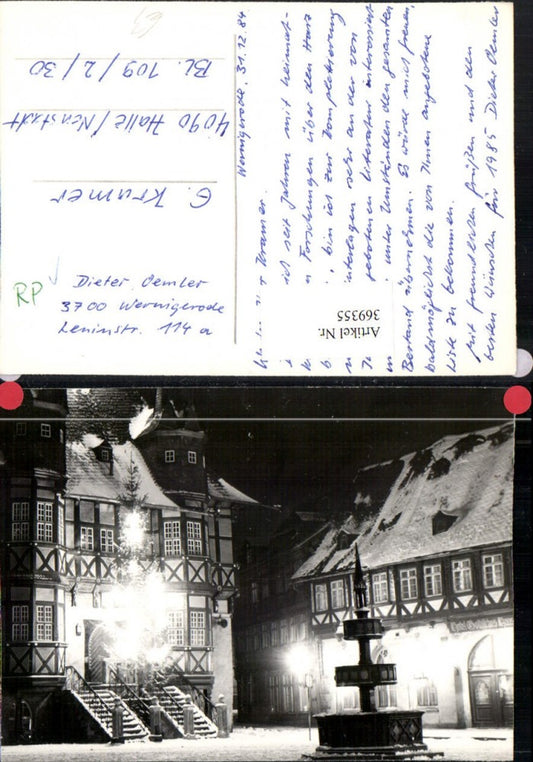 Wernigerode, 31.12.84
Kramer.
ich seit Jahren mit heimat-
n Forschungen über den Harz
, bin ich zur Komplettierung
unterlagen sehr an der von
gebotenen Literatur interessiert
unter Umständen den gesamten
Bestand übernehmen. Es würde mich freuen,
baldmöglichst die von Ihnen angebotene
Liste zu bekommen.
Mit freundlichen Grüßen und den
besten Wünschen für 1985 Dieter Oemler
G. Kramer
4090 Halle/Neustadt
Bl. 109/2/30
RP
Dieter Oemler
3700 Wernigerode
Leninstr. 114 a
Artikel Nr.
369355